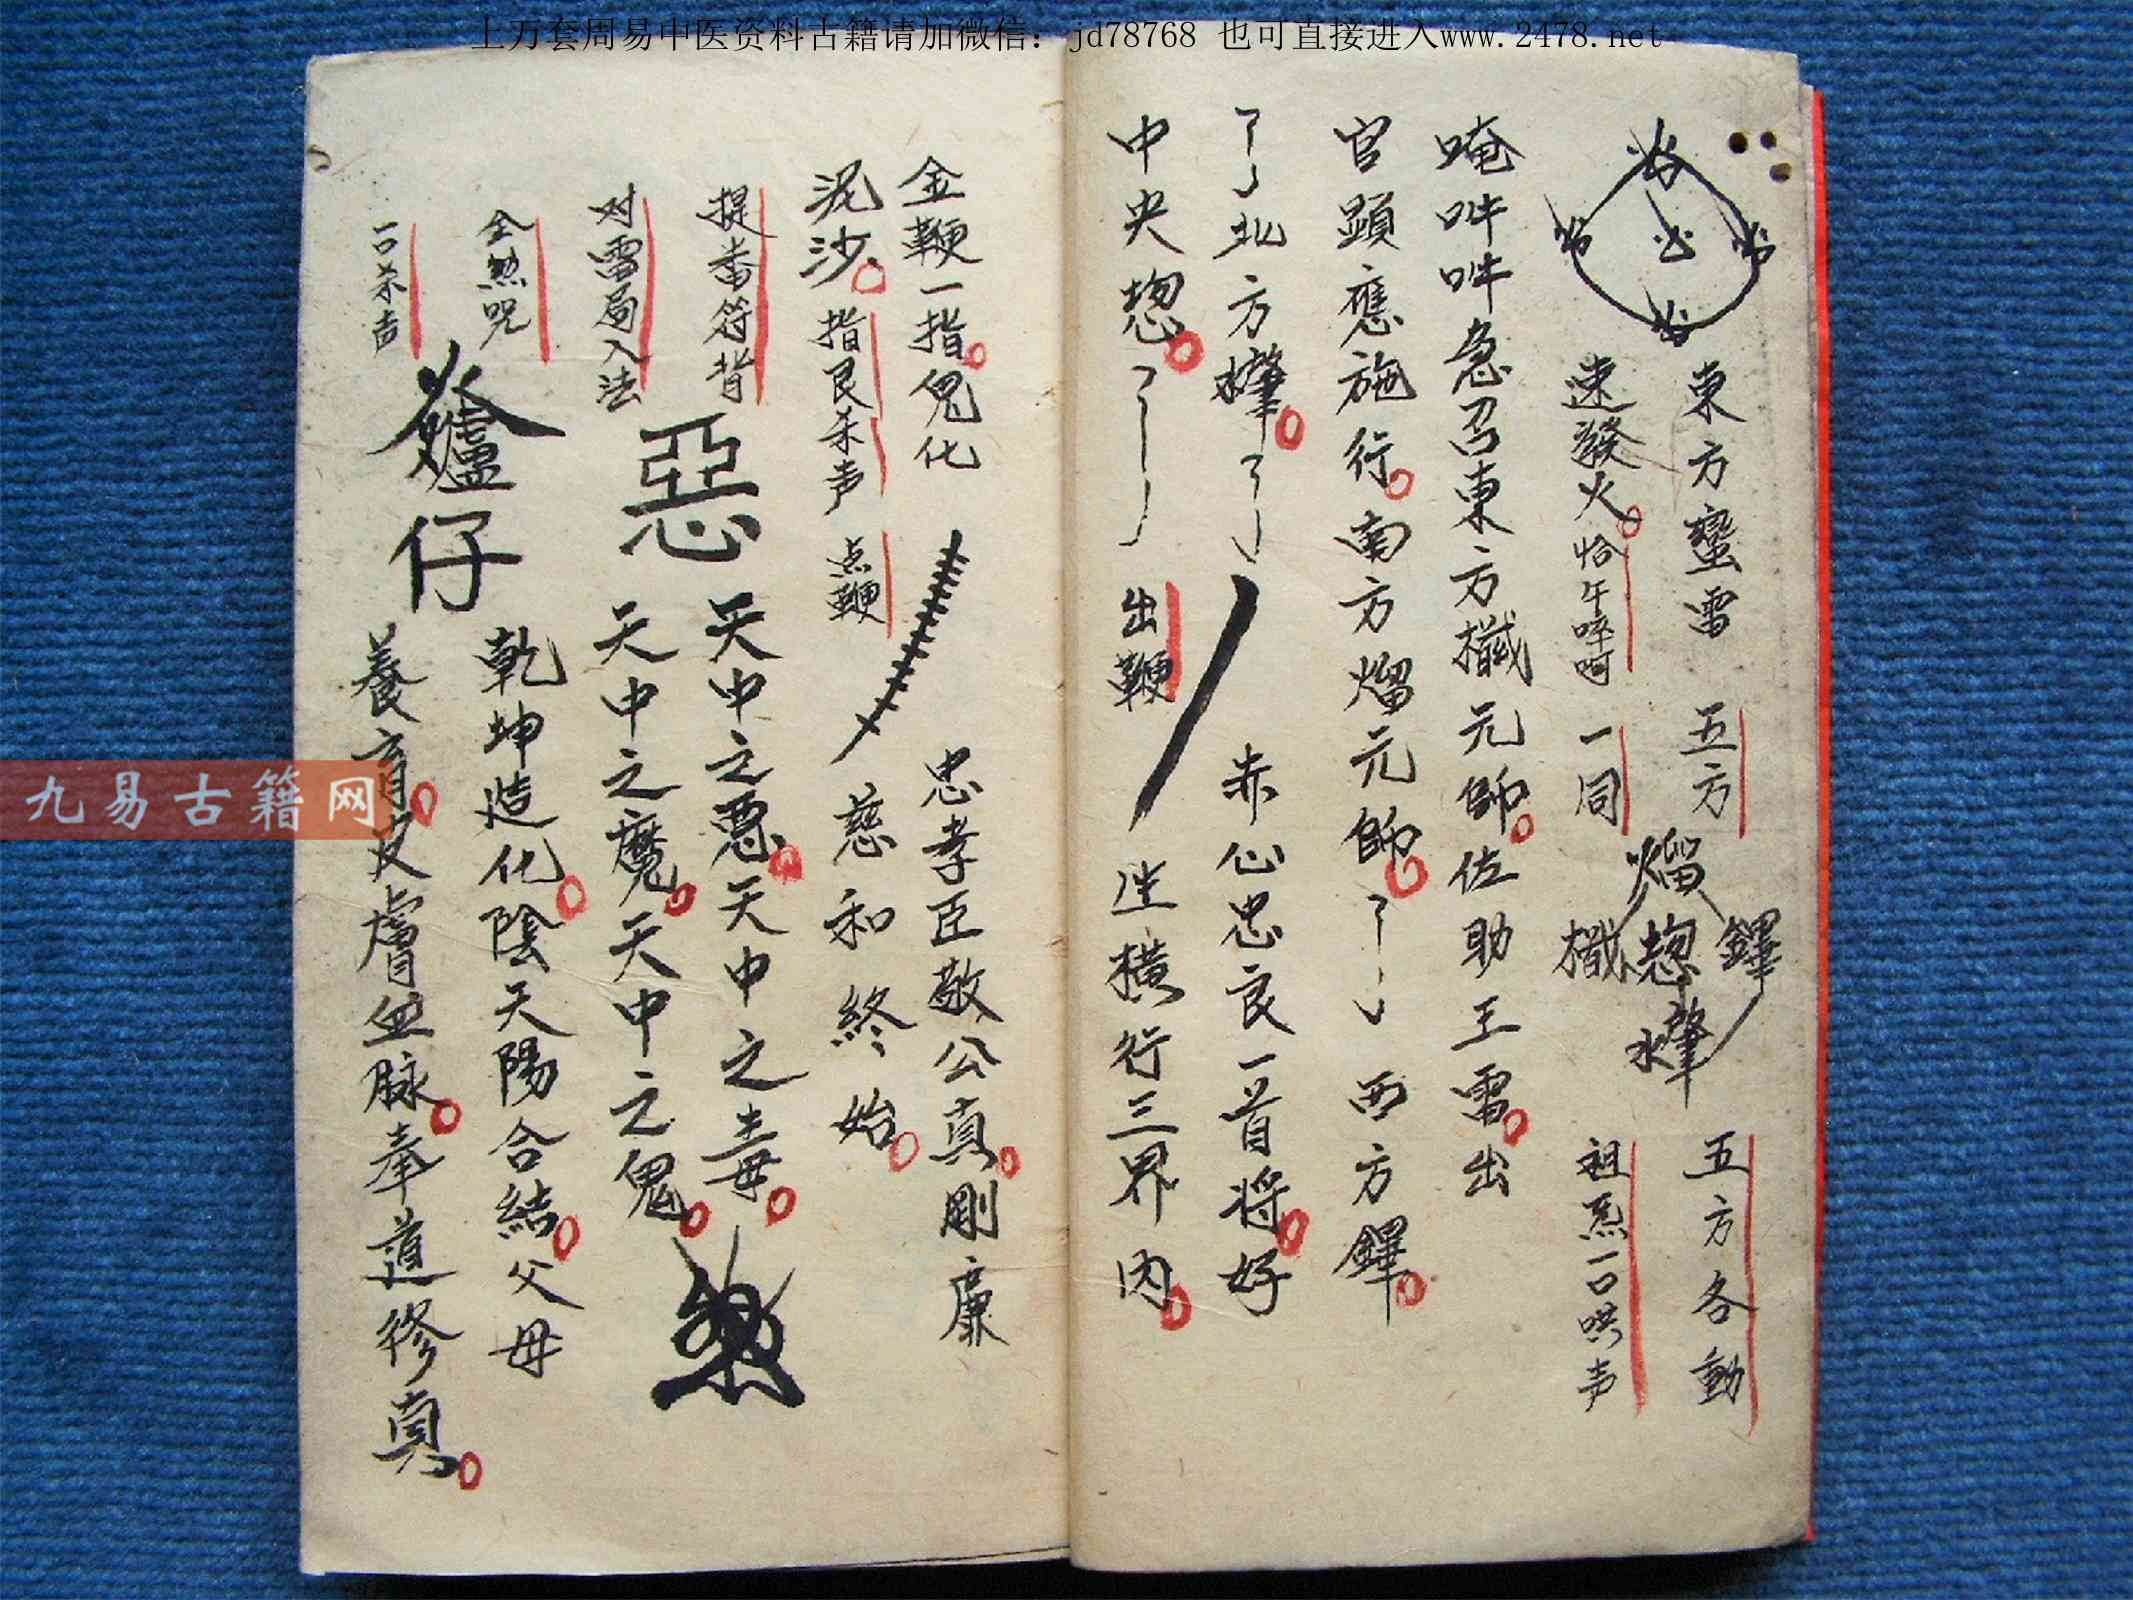 上万套周易中医资料古籍请加微信：jd78768 也可直接进入www.2478.net
東方蠻雷 五方
五方各動
速發火 恰午啐呵 一同
祖炁一口哄声
唵吽吽急召東方 元帥佐助王雷出
官顯應施行南方熘元帥 西方鐸
北方 赤心忠良一首將好
中央 出鞭 坐横行三界内
金鞭一指鬼化 忠孝臣敬公真剛廉
泥沙 指艮杀声 点鞭 慈和終始
提番符背 天中之悪天中之毒
对雷局入法 惡 天中之魔天中之鬼
全煞咒 乾坤造化陰天陽合結父母
一口杀声 仔 養育皮膚血脉奉道修真
九易古籍网